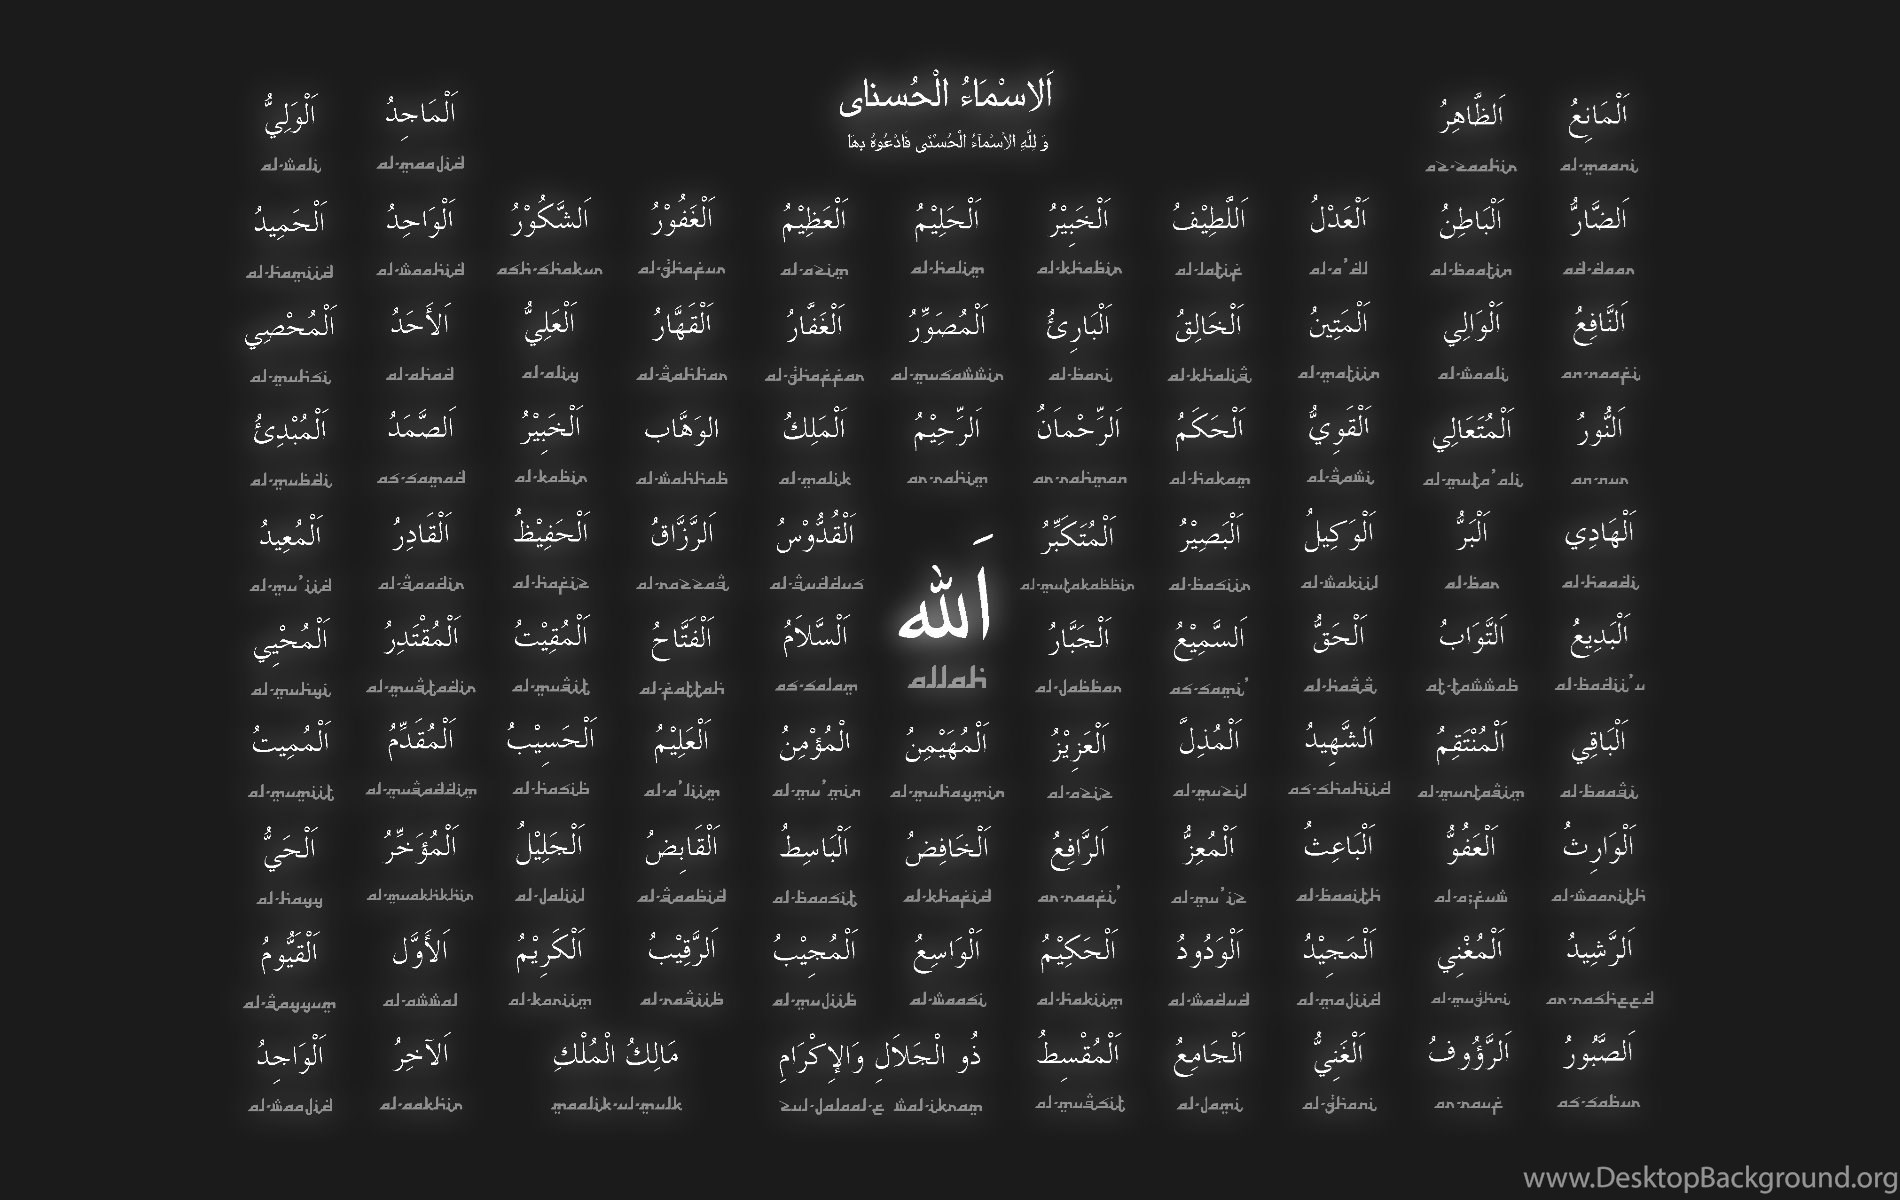 اَلاسْمَاءُ الْحُسنای
وَ لِلّٰهِ الاَسْمَآءُ الْحُسْنٰی فَادْعُوهُ بِهَا
اَلْمَانِعُ اَلظَّاهِرُ اَلْمَاجِدُ اَلْوَلِيُّ
al-maani az-zaahir al-maajid al-wali
اَلضَّارُّ اَلْبَاطِنُ اَلْعَدْلُ اَللَّطِيْفُ اَلْخَبِيْرُ اَلْحَلِيْمُ اَلْعَظِيْمُ اَلْغَفُوْرُ اَلشَّكُوْرُ اَلْوَاحِدُ اَلْحَمِيدُ
ad-daar al-baatin al-a'dl al-latif al-khabir al-halim al-azim al-ghafur ash-shakur al-waahid al-hamiid
اَلنَّافِعُ اَلْوَالِي اَلْمَتِينُ اَلْخَالِقُ اَلْبَارِئُ اَلْمُصَوِّرُ اَلْغَفَّارُ اَلْقَهَّارُ اَلْعَلِيُّ اَلأَحَدُ اَلْمُحْصِي
an-naafi al-waali al-matiin al-khaliq al-bari al-musawwir al-ghaffar al-qahhar al-aliy al-ahad al-muhsi
اَلنُّورُ اَلْمُتَعَالِي اَلْقَوِيُّ اَلْحَكَمُ اَلرِّحْمانُ اَلرِّحِيْمُ اَلْمَلِكُ الوَهَّاب اَلْخَبِيْرُ اَلصَّمَدُ اَلْمُبْدِئُ
an-nur al-muta'ali al-qawi al-hakam ar-rahman ar-rahim al-malik al-wahhab al-kabir as-samad al-mubdi
اَلْهَادِي اَلْبَرُّ اَلْوَكِيلُ اَلْبَصِيْرُ اَلْمُتَكَبِّرُ اَلْقُدُّوْسُ اَلرَّزَّاقُ اَلْحَفِيْظُ اَلْقَادِرُ اَلْمُعِيدُ
al-haadi al-bar al-wakiil al-basiir al-mutakabbir al-quddus al-razzaq al-hafiz al-qaadir al-mu'iid
اَلله
allah
اَلْبَدِيعُ اَلتَّوَابُ اَلْحَقُّ اَلسَّمِيْعُ اَلْجَبَّارُ اَلْسَّلاَمُ اَلْفَتَّاحُ اَلْمُقِيْتُ اَلْمُقْتَدِرُ اَلْمُحْيِي
al-badii'u at-tawwab al-haqq as-sami' al-jabbar as-salam al-fattah al-muqit al-muqtadir al-muhyi
اَلْبَاقِي اَلْمُنْتَقِمُ اَلشَّهِيدُ اَلْمُذِلَّ اَلْعَزِيْزُ اَلْمُهَيْمِنُ الْمُؤْمِنُ اَلْعَلِيْمُ اَلْحَسِيْبُ اَلْمُقَدِّمُ اَلْمُمِيتُ
al-baaqi al-muntaqim as-shahiid al-muzil al-aziz al-muhaymin al-mu'min al-a'liim al-hasib al-muqaddim al-mumiit
اَلْوَارِثُ اَلْعَفُوُّ اَلْبَاعِثُ اَلْمُعِزُّ اَلرَّافِعُ اَلْخَافِضُ اَلْبَاسِطُ اَلْقَابِضُ اَلْجَلِيْلُ اَلْمُؤَخِّرُ اَلْحَيُّ
al-waarith al-a;fuw al-baaith al-mu'iz ar-raafi' al-khafid al-baasit al-qaabid al-jaliil al-muakhkhir al-hayy
اَلرَّشِيدُ اَلْمُغْنِي اَلْمَجِيْدُ اَلْوَدُودُ اَلْحَكِيْمُ اَلْوَاسِعُ اَلْمُجِيْبُ اَلرَّقِيْبُ اَلْكَرِيْمُ اَلأَوَّل اَلْقَيُّومُ
ar-rasheed al-mughni al-majiid al-wadud al-hakiim al-waasi al-mujiib al-raqiib al-kariim al-awwal al-qayyum
اَلصَّبُورُ اَلرَّؤُوفُ اَلْغَنِيُّ اَلْجَامِعُ اَلْمُقْسِطُ ذُو الْجَلاَلِ وَالإِكْرَامِ مَالِكُ الْمُلْكِ اَلآخِرُ اَلْوَاجِدُ
as-sabur ar-rauf al-ghani al-jami al-muqsit zul-jalaal-e wal-ikram maalik-ul-mulk al-aakhir al-waajid
www.DesktopBackground.org